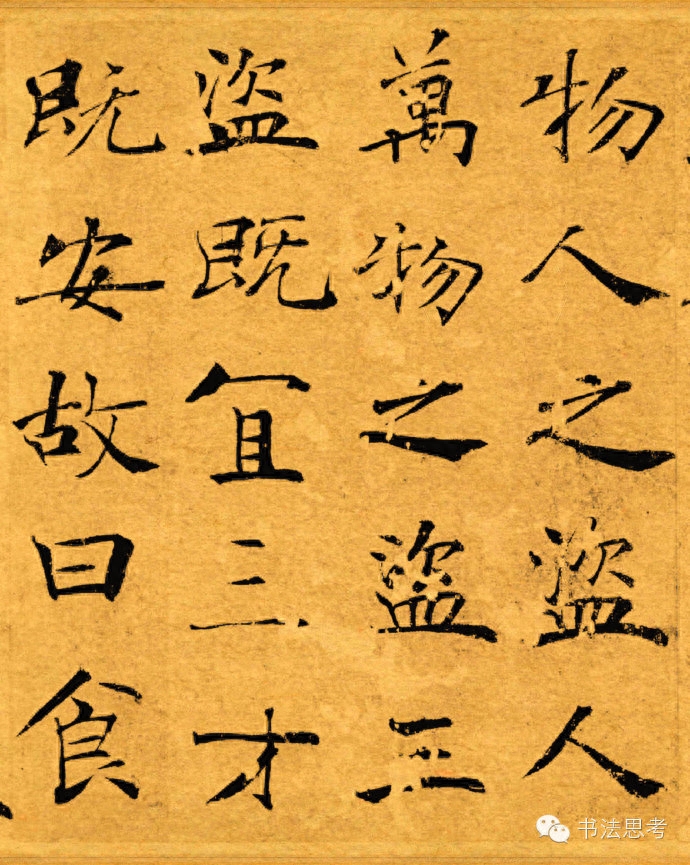 物人之盜人
萬物之盜三
盜既冝三才
既安故曰食
书法思考